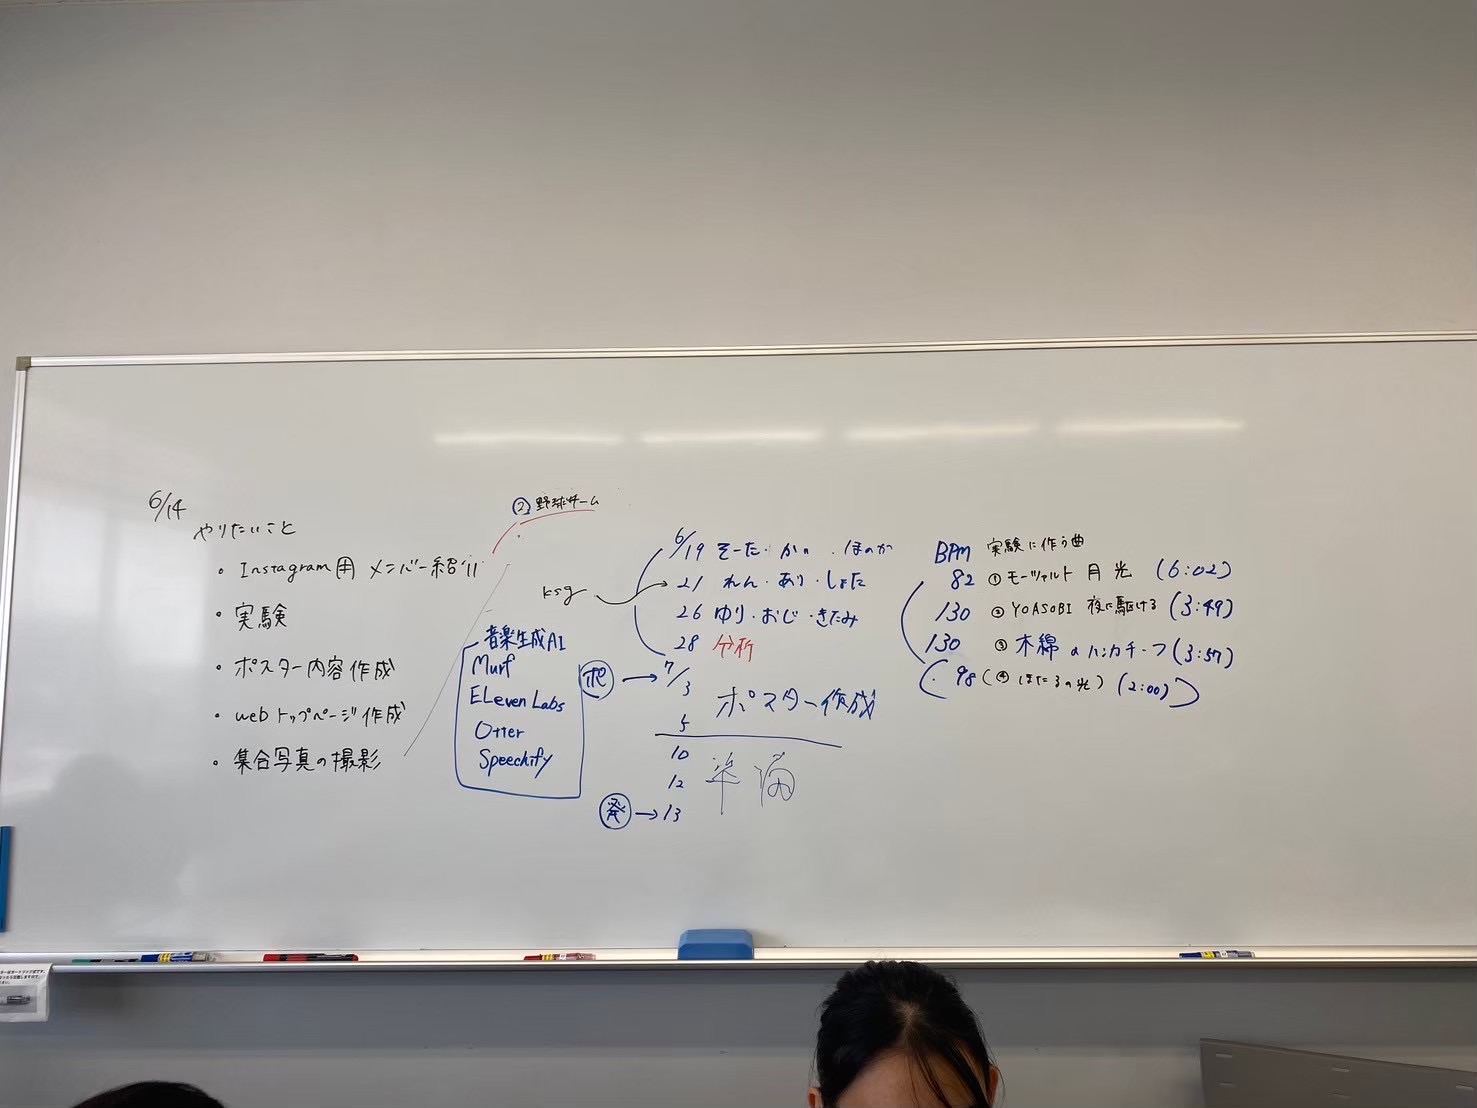 6/14
やりたいこと
・Instagram用 メンバー紹介
・実験
・ポスター内容作成
・webトップページ作成
・集合写真の撮影
② 野球チーム
音楽生成AI
Murf
ELeven Labs
Otter
Speechify
ksg
6/19 そーた・かの・ほのか
21 れん・あり・しょた
26 ゆり・おじ・きたみ
28 分析
ポ → 7/3
ポスター作成
5
10
準備
12
発 → 13
BPM 実験に使う曲
82 ① モーツァルト 月光 (6:02)
130 ② YOASOBI 夜に駆ける (3:49)
130 ③ 木綿のハンカチーフ (3:57)
98 (④ ほたるの光) (2:00)